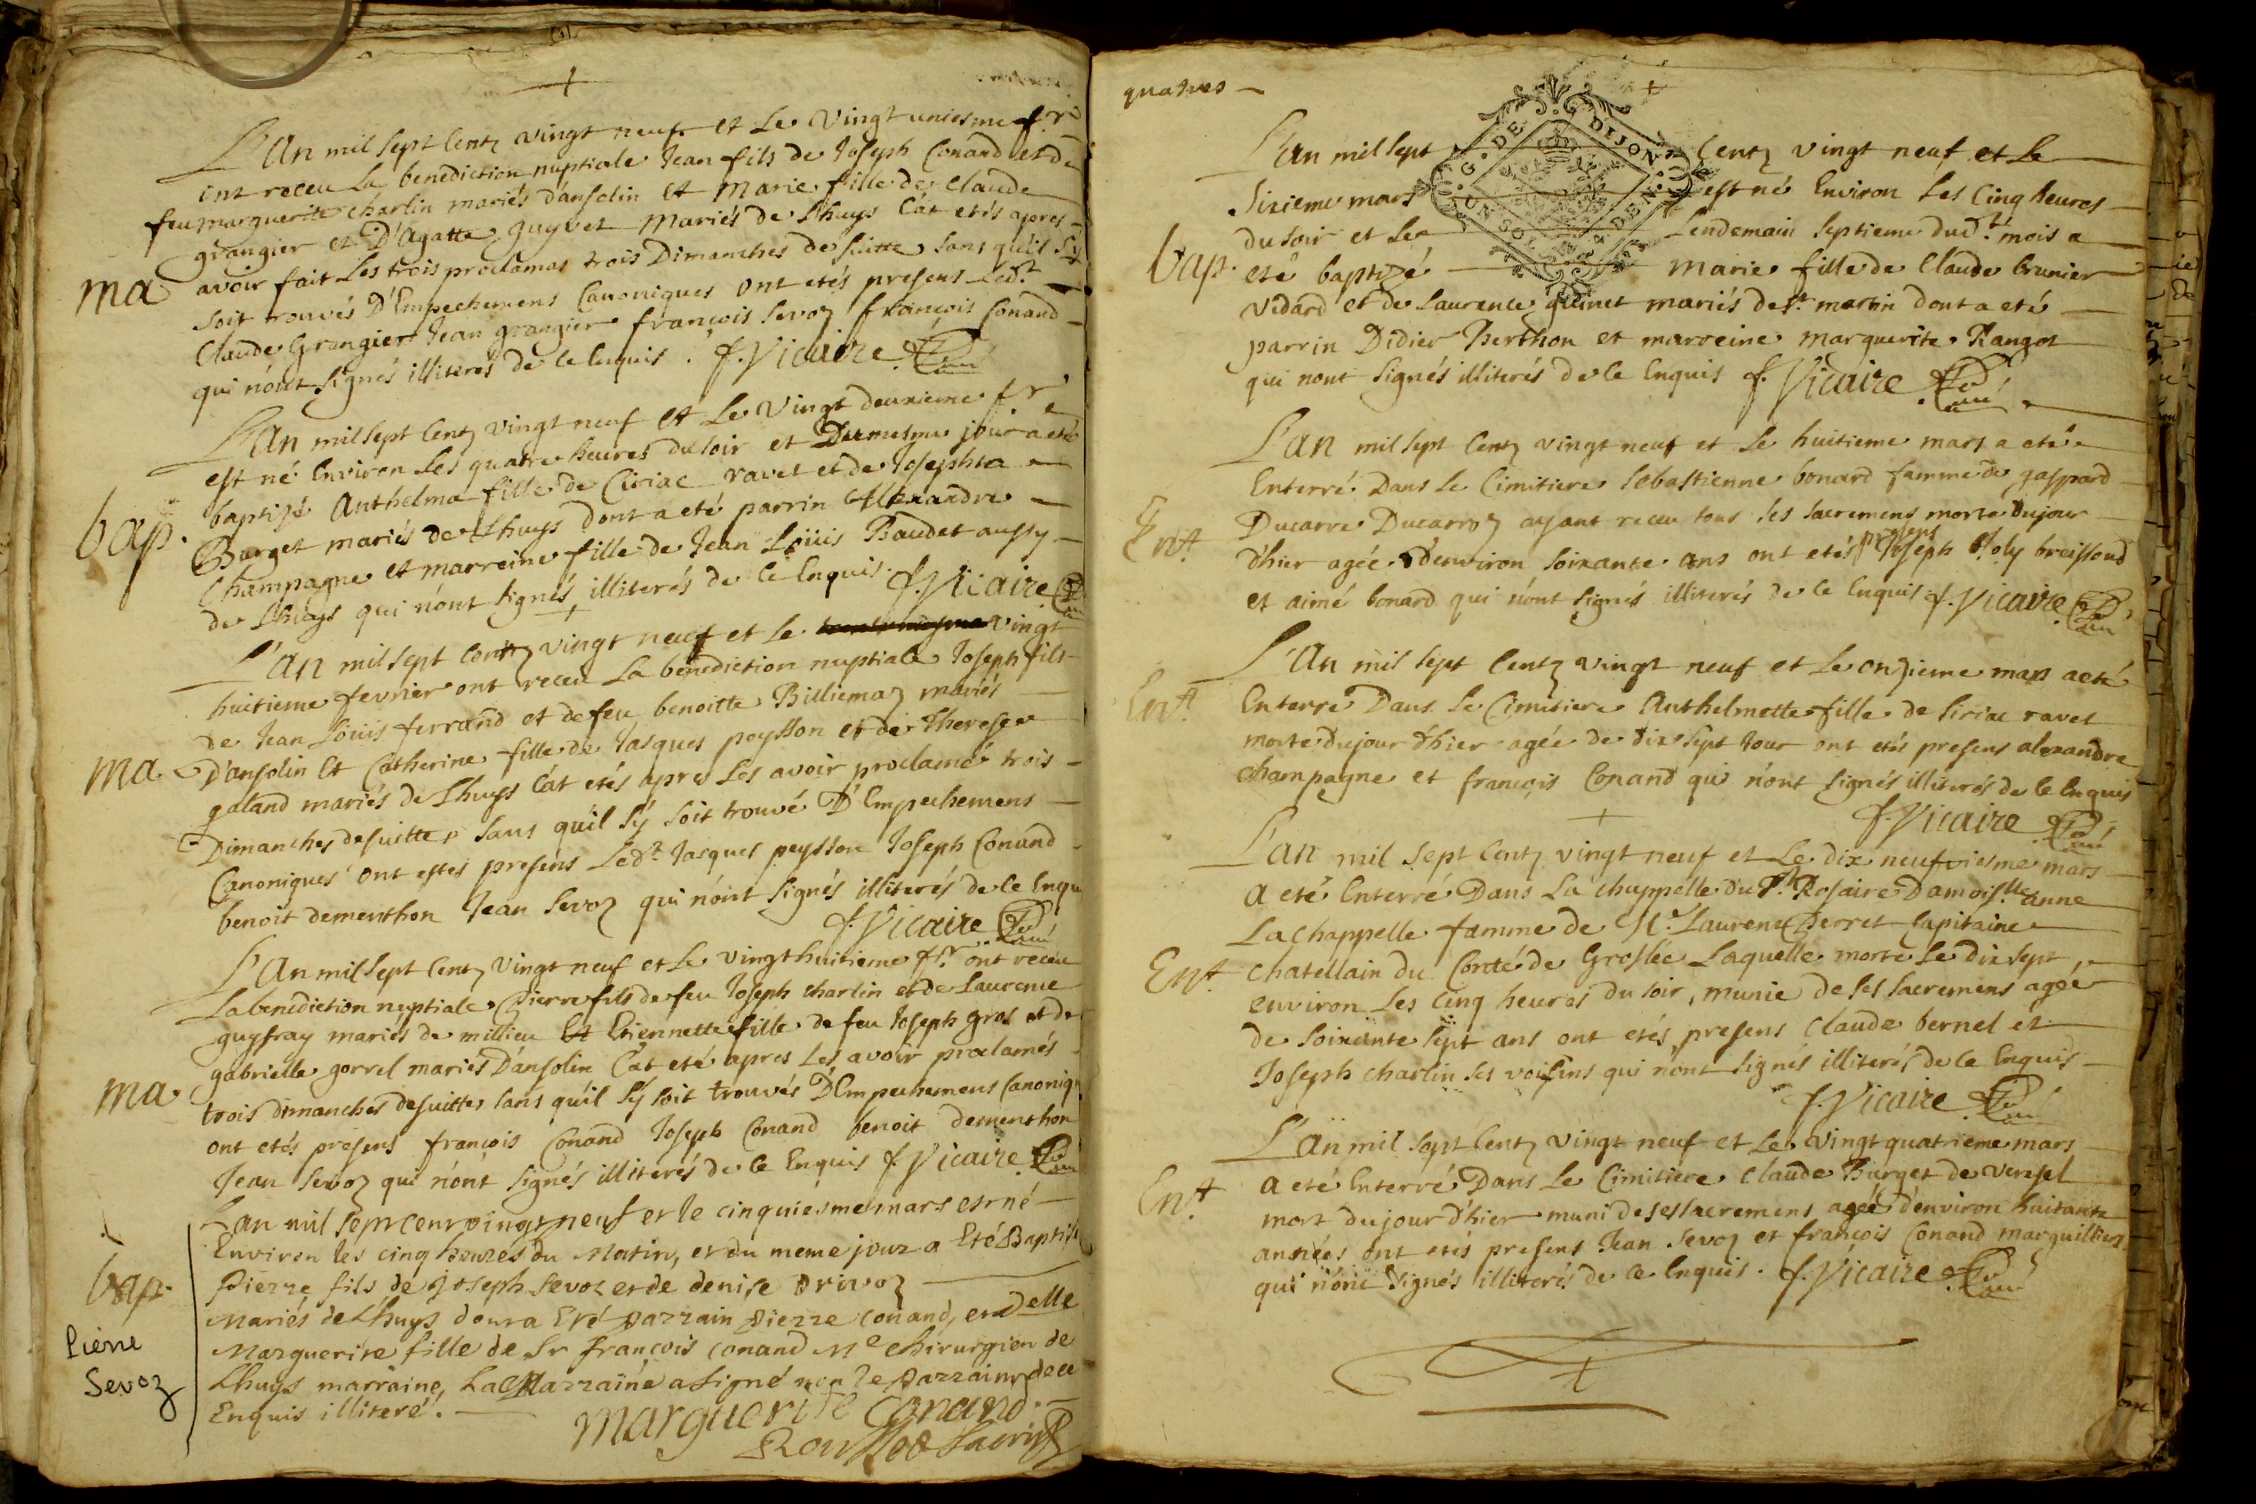 L'An mil sept Centz vingt neuf et Le Vingt uniesme f.r
ont receu La benediction nuptiale Jean fils de Joseph Conand et de
feu marguerite charlin mariés d'ansolin et Marie fille de Claude
grangier et D'Agatte guyvet Mariés de Lhuys C'at etés apres
avoir fait Les trois proclamas trois Dimanches de suitte sans quil s'y
ma
soit trouvés D'Empechemens Canoniques ont etés presens Led.t
Claude Grangier Jean grangier françois Sevoz françois Conand
qui n'ont signés illiterés de ce Enquis. f. Vicaire
L'An mil sept Centz vingt neuf et Le Vingt deuxieme f.r
est né Environ Les quatre heures du soir et Du mesme jour a eté
baptizé Anthelma fille de Ciriac ravet et de Josephta
bap.
Burget mariés de Lhuys dont a eté parrin Alexandre
Champagne et marreine fille de Jean Loüis Baudet aussy
de Lhuys qui n'ont signés illiterés de Ce Enquis. f. Vicaire
L'An mil sept Centz vingt neuf et Le vingt
huitieme fevrier ont receu La benediction nuptiale Joseph fils
de Jean Loüis ferrand et de feu benoitte Billiemaz mariés
D'ansolin Et Catherine fille de Jasques peysson et de Therese
ma
galand mariés de Lhuys C'at etés apres Les avoir proclamé trois
Dimanches de suitte sans qu'il s'y soit trouvé D'Empechemens
Canoniques ont estes presens Led.t Jasques peysson Joseph Conand
benoit dementhon Jean Sevoz qui n'ont signés illiterés de Ce Enqu
f. Vicaire
L'An mil sept Centz vingt neuf et Le vingt huitieme f.r ont receu
La benediction nuptiale Pierre fils de feu Joseph charlin et de Laurence
guyfray mariés de millieu Et Etiennette fille de feu Joseph gros et de
gabrielle gorrel mariés D'ansolin C'at eté apres Les avoir proclamés
ma
trois dimanches de suittes sans qu'il s'y soit trouvés D'Empechemens Canoniq
ont etés presens françois Conand Joseph Conand benoit dementhon
Jean Sevoz qui n'ont signés illiterés de Ce Enquis f. Vicaire
L'an mil sept cent vingt neuf et le cinquiesme mars est né
Environ les cinq heures du Matin, et du meme jour a Eté Baptisé
bap.
Pierre fils de Joseph Sevoz et de denise Drivoz
Mariés de Lhuys dont a Eté parrain pierre Conand, et delle
Pierre
Marguerite fille de Sr françois Conand Me chirurgien de
Sevoz
Lhuys marraine, La Marraine a signé non le parrain de ce
Enquis illiteré.
marguerite Conand

quatres
G. DE DIJON
L'An mil sept Centz vingt neuf et Le
Sixieme mars est né Environ Les Cinq heures
du soir et Le Lendemain septieme dud.t mois a
bap.
eté baptizé Marie fille de Claude brunier
Vidard et de Laurence quinet mariés de s.t martin dont a eté
parrin Didier Berthon et marreine marguerite Rangot
qui nont signés illiterés de Ce Enquis f. Vicaire
L'an mil sept Centz vingt neuf et Le huitieme mars a eté
Enterré Dans Le Cimitiere Sebastienne bonard famme de gaspard
Ent
Ducarre Ducarroz ayant receu tous ses sacremens morte du jour
d'hier agée d'environ soixante ans ont etés presens Joseph Joly braissoud
et aimé bonard qui n'ont signés illiterés de Ce Enquis f. Vicaire
L'An mil sept Centz vingt neuf et Le onzieme mars a eté
Ent
Enterré Dans Le Cimitiere Anthelmette fille de Siriac ravet
morte du jour d'hier agée de dix sept Jour ont etés presens alexandre
champagne et françois Conand qui n'ont signés illiterés de Ce Enquis
f. Vicaire
L'an mil sept Centz vingt neuf et Le dix neufviesme mars
a eté Enterré Dans La chappelle du S.t Rosaire Damois.lle anne
La chappelle famme de M.r Laurent Perret Capitaine
Ent
chatellain du Conté de Groslée Laquelle morte Le dix sept
environ Les cinq heures du soir, munie de ses sacremens agée
de soixante sept ans ont etés presens Claude bernel et
Joseph charlin ses voisins qui n'ont signés illiterés de Ce Enquis
f. Vicaire
L'An mil sept Centz vingt neuf et Le vingt quatrieme mars
Ent
a eté Enterré Dans Le Cimitiere Claude Burget de versel
mort du jour d'hier muni de ses sacremens agéé d'environ huitante
années ont etés presens Jean Sevoz et françois Conand marguilliez
qui n'ont signés illiterés de Ce Enquis. f. Vicaire